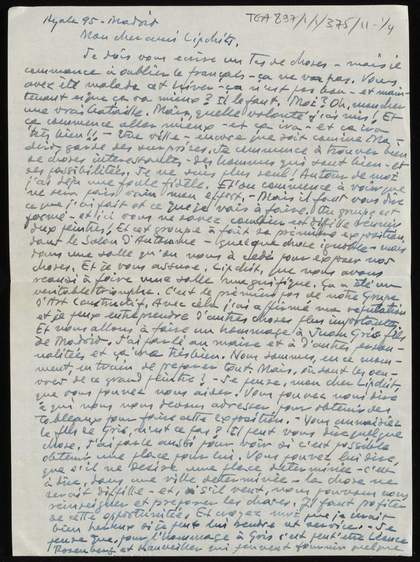 Ayala 95 - Madrid
TGA 897/1/1/375/11-1/4
Mon cher ami Lipchitz.
Je dois vous écrire un tas de choses - mais je
commence à oublier le français - ça ne va pas. Vous
avez été malade cet hiver - ça n'est pas bon - et main-
tenant est que ça va mieux? Il le faut. Moi? Oh, mon cher
une vraie bataille. Mais, quelle volonté j'ai mis! Et
ça commence aller mieux - et ça ira - et ça ira
très bien!! - Une ville - encore que soit comme Ma-
drid, garde ses surprises. Je commence à trouver bien
de choses interessantes - des hommes qui sont bien - et
des possibilités. Je ne suis plus seul! Autour de moi
j'ai déjà une foule fidèle. Et on commence à voir que
ne sera pas vain mon effort. - Mais il faut vous dire
ce que j'ai fait et ce que je vais à faire. Un groupe est
formé - et ici vous ne savez combien est difficile reunir
deux peintres. Et cet groupe à fait sa première exposition,
dans le Salon d'Automne - quelque chose ignoble - mais
dans une salle qu'on nous à cédé pour exposer nos
choses. Et je vous assure, Lipchitz, que nous avons
reussi à faire une salle magnifique. Ça a été un
veritable triomphe. C'est le premier pas de notre Groupe
d'Art Constructif. Avec cela j'ai affirmé ma reputation
et je peux entreprendre d'autres choses plus importantes.
Et nous allons à faire un hommage à Juan Gris fils
de Madrid. J'ai parlé au maire et à d'autres person-
nalités et ça ira très bien. Nous sommes, en ce mo-
ment, en train de preparer tout. Mais, où sont les oeu-
vres de ce grand peintre? - Je pense, mon cher Lipchitz,
que vous pouvez nous aider. Vous pouvez nous dire
à qui nous nous devons adresser pour obtenir des
tableaux pour faire cette exposition. - Vous connaissez
le fils de Gris, n'est ce pas? Il peut vous dire quelque
chose. J'ai parlé aussi pour voir si c'est possible
obtenir une place pour lui. Vous pouvez lui dire,
que s'il ne désire une place determinée - c'est
à dire, dans une ville determinée - la chose ne
serait difficile - et, s'il veut, nous pouvons nous
renseigner et preparer les choses. Il faut profiter
de cette opportunité. Et croyez moi que je serai
bien heureux si je peut lui rendre cet service. - Je
pense que pour l'hommage à Gris c'est peut être Léonce
Rosenberg et Kanweiller qui peuvent fournir quelque